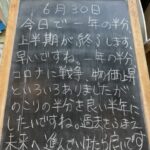 6月30日
今日で一年の半分
上半期が終了します。
早いですね。一年の半分
コロナに戦争、物価上昇
といろいろありましたが
のこりの半分を良い半年に
したいですね。過去をふまえ
未来へ進んでいけたら良いです